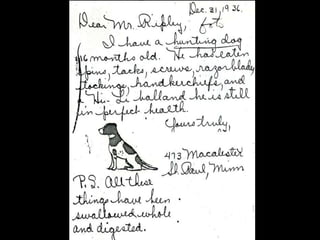 Dec. 31, 1936.
Dear Mr. Ripley,
I have a hunting dog
16 months old. He has eaten
pins, tacks, screws, razor blades,
stockings, handkerchiefs, and
a Hi-Li ball and he is still
in perfect health.
Yours truly,
473 Macalester
St. Paul, Minn
P.S. All these
things have been
swallowed whole
and digested.